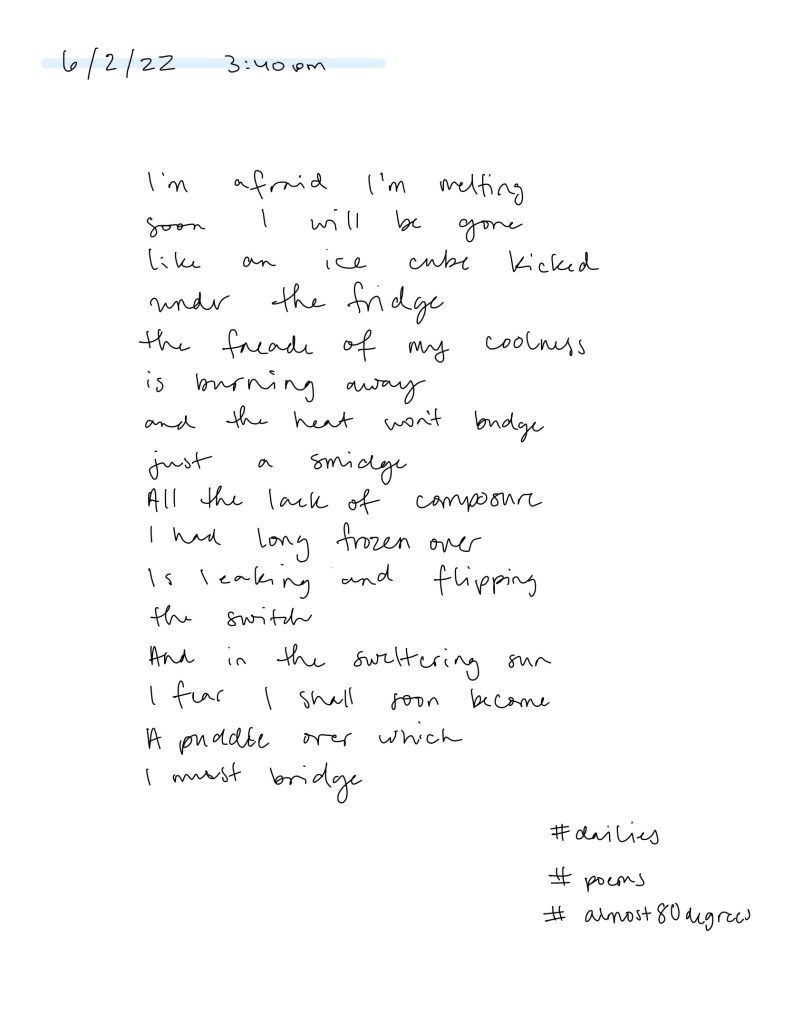 6/2/22 3:40 pm
I'm afraid I'm melting
soon I will be gone
like an ice cube kicked
under the fridge
the facade of my coolness
is burning away
and the heat won't budge
just a smidge
All the lack of composure
I had long frozen over
Is leaking and flipping
the switch
And in the sweltering sun
I fear I shall soon become
A puddle over which
I must bridge
#dailies
# poems
# almost80degrees